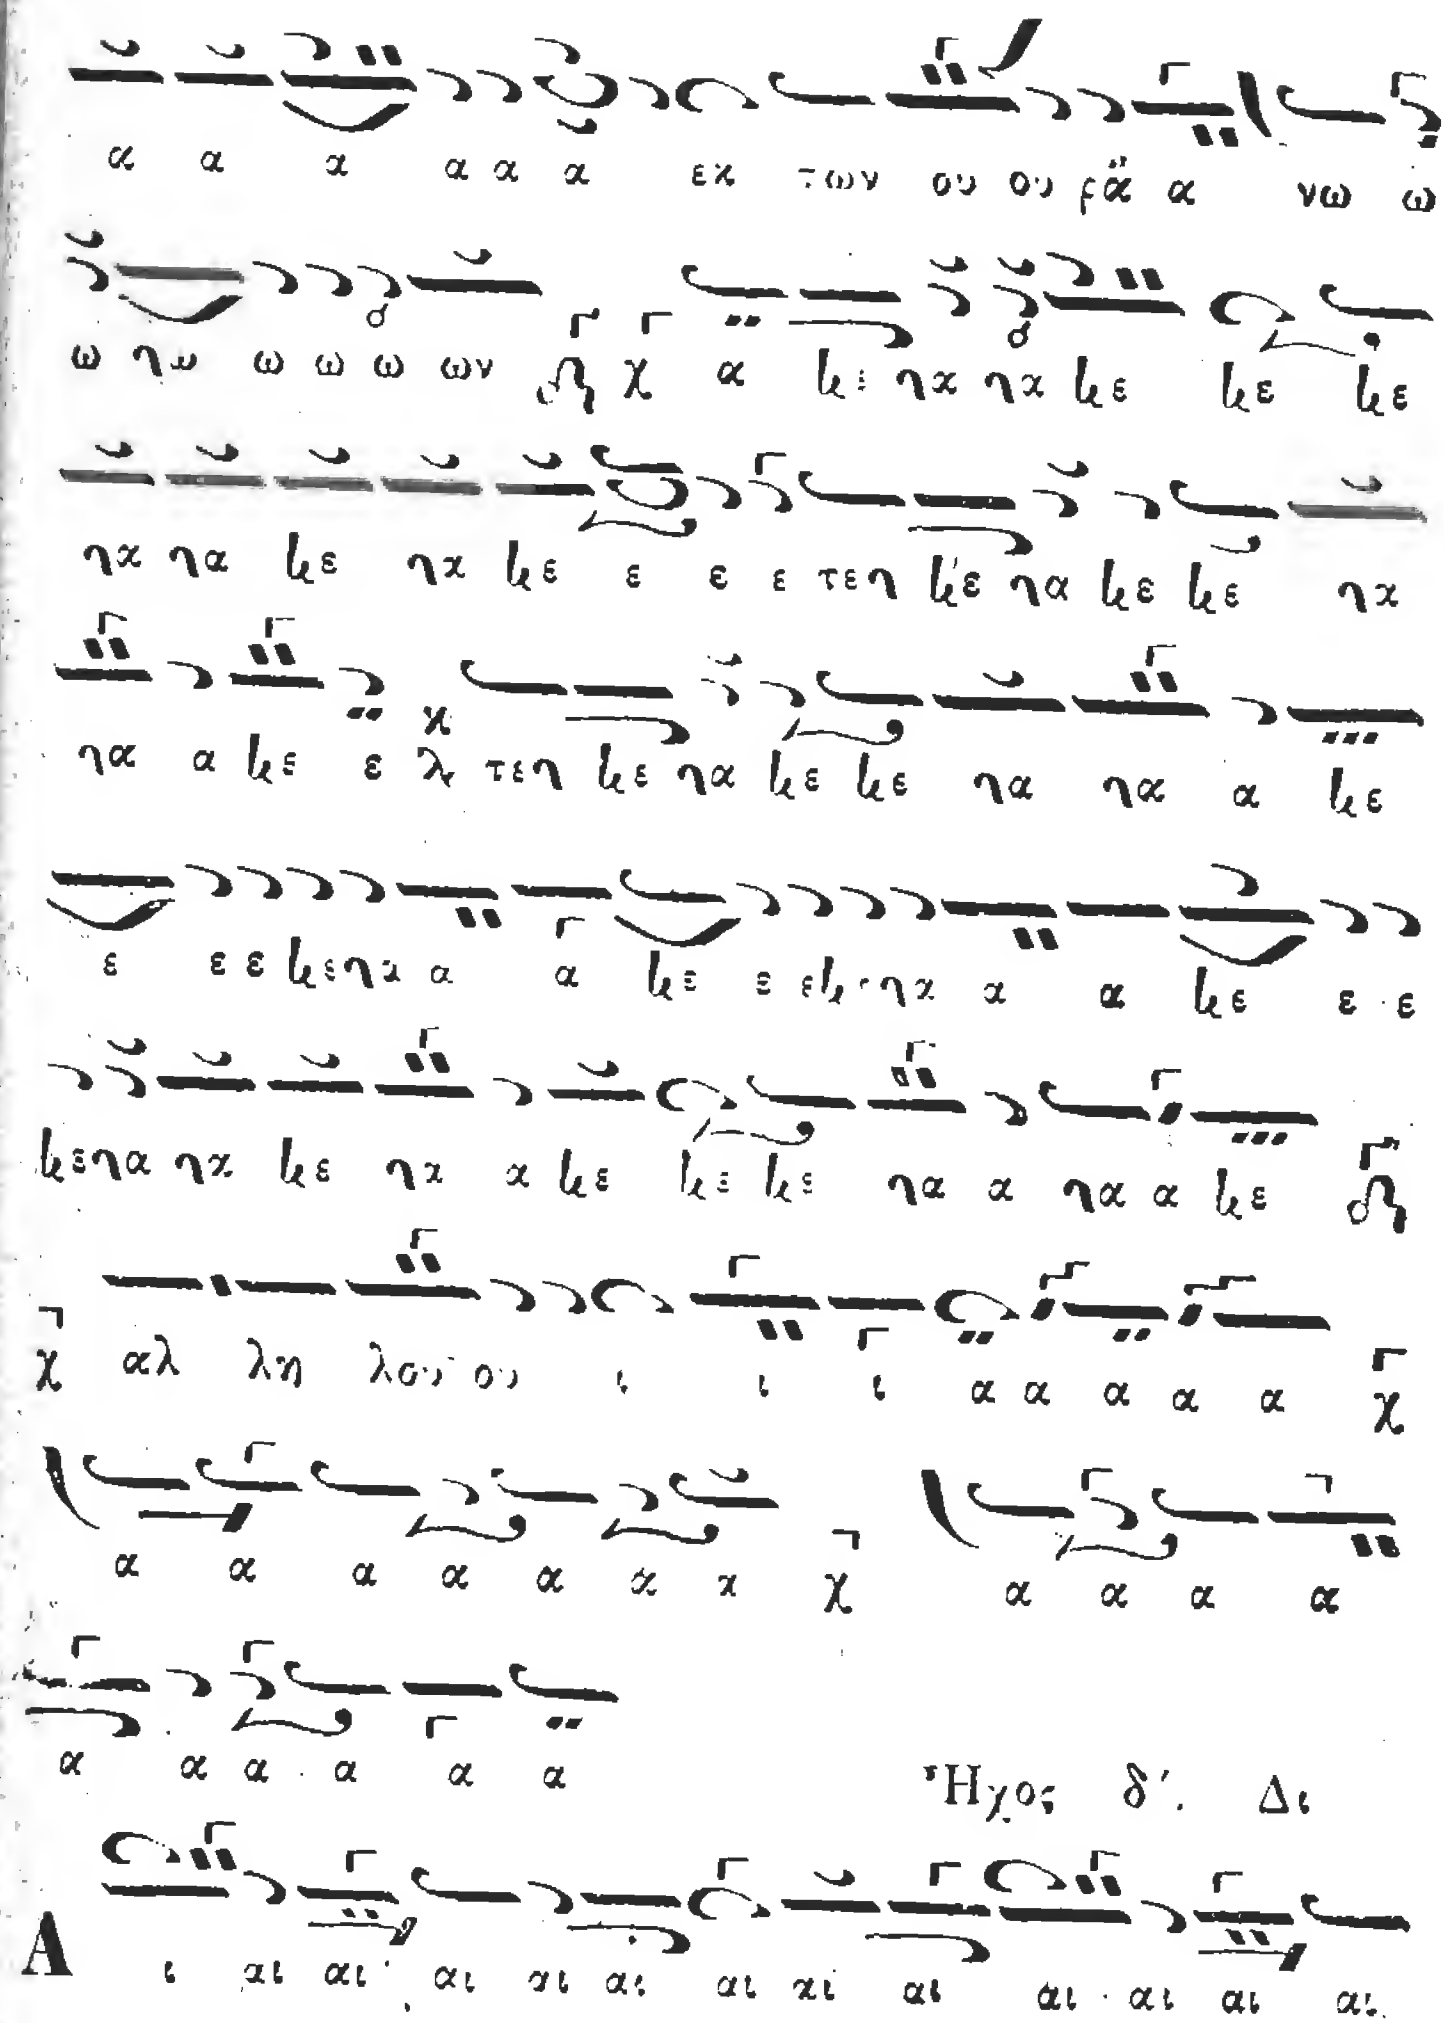 α α α α α α εκ των ου ου ρα α νω ω
ω ηω ω ω ω ων χ α κε ηα ηα κε κε κε
ηα ηα κε ηα κε ε ε ε τεη κε ηα κε κε ηα
ηα α κε ε λ τεη κε ηα κε κε ηα ηα α κε
ε ε ε κεηα α α κε ε εκε ηα α α κε ε ε
κεηα ηα κε ηα α κε κε κε ηα α ηα α κε
χ αλ λη λου ου ι ι ι α α α α α χ
α α α α α α α χ α α α α
α α α α α α
Ἦχος δ΄. Δι
Α ι αι αι αι αι αι αι αι αι αι αι αι αι